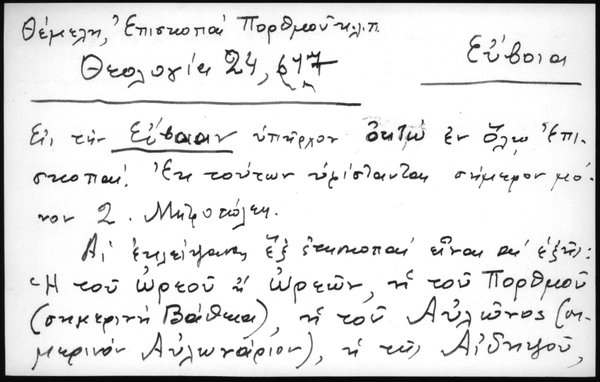 Θέμελη, Ἐπισκοπαὶ Πορθμοῦ κ.λ.π.
Θεολογία 24, 617
Εὔβοια
Εἰς τὴν Εὔβοιαν ὑπῆρχον ὀκτὼ ἐν ὅλῳ Ἐπι-
σκοπαί. Ἐκ τούτων ὑφίστανται σήμερον μό-
νον 2. Μητροπόλεις.
Αἱ ἐκλείψασαι ἓξ ἐπισκοπαὶ εἶναι αἱ ἑξῆς:
Ἡ τοῦ Ὠρεοῦ ἢ Ὠρεῶν, ἡ τοῦ Πορθμοῦ
(σημερινὴ Βάθεια), ἡ τοῦ Αὐλῶνος (ση-
μερινὸν Αὐλωνάριον), ἡ τῆς Αἰδηψοῦ,